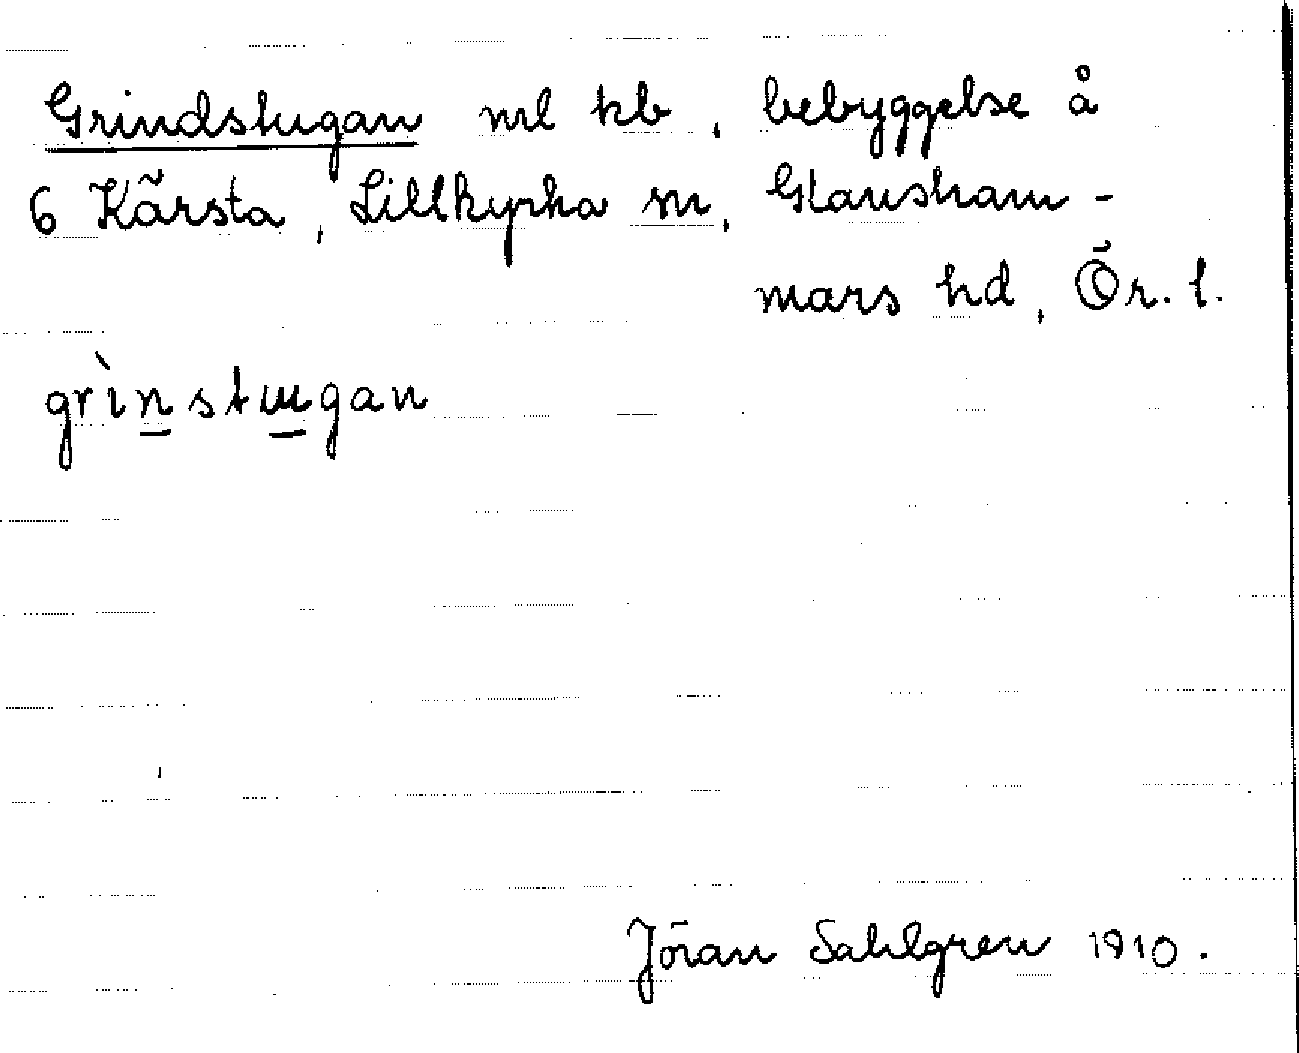 Grindstugan nrl kb, bebyggelse å
6 Kärsta, Lillkyrka sn, Glansham-
mars hd, Ör. l.
grìnstugan
Jöran Sahlgren 1910.